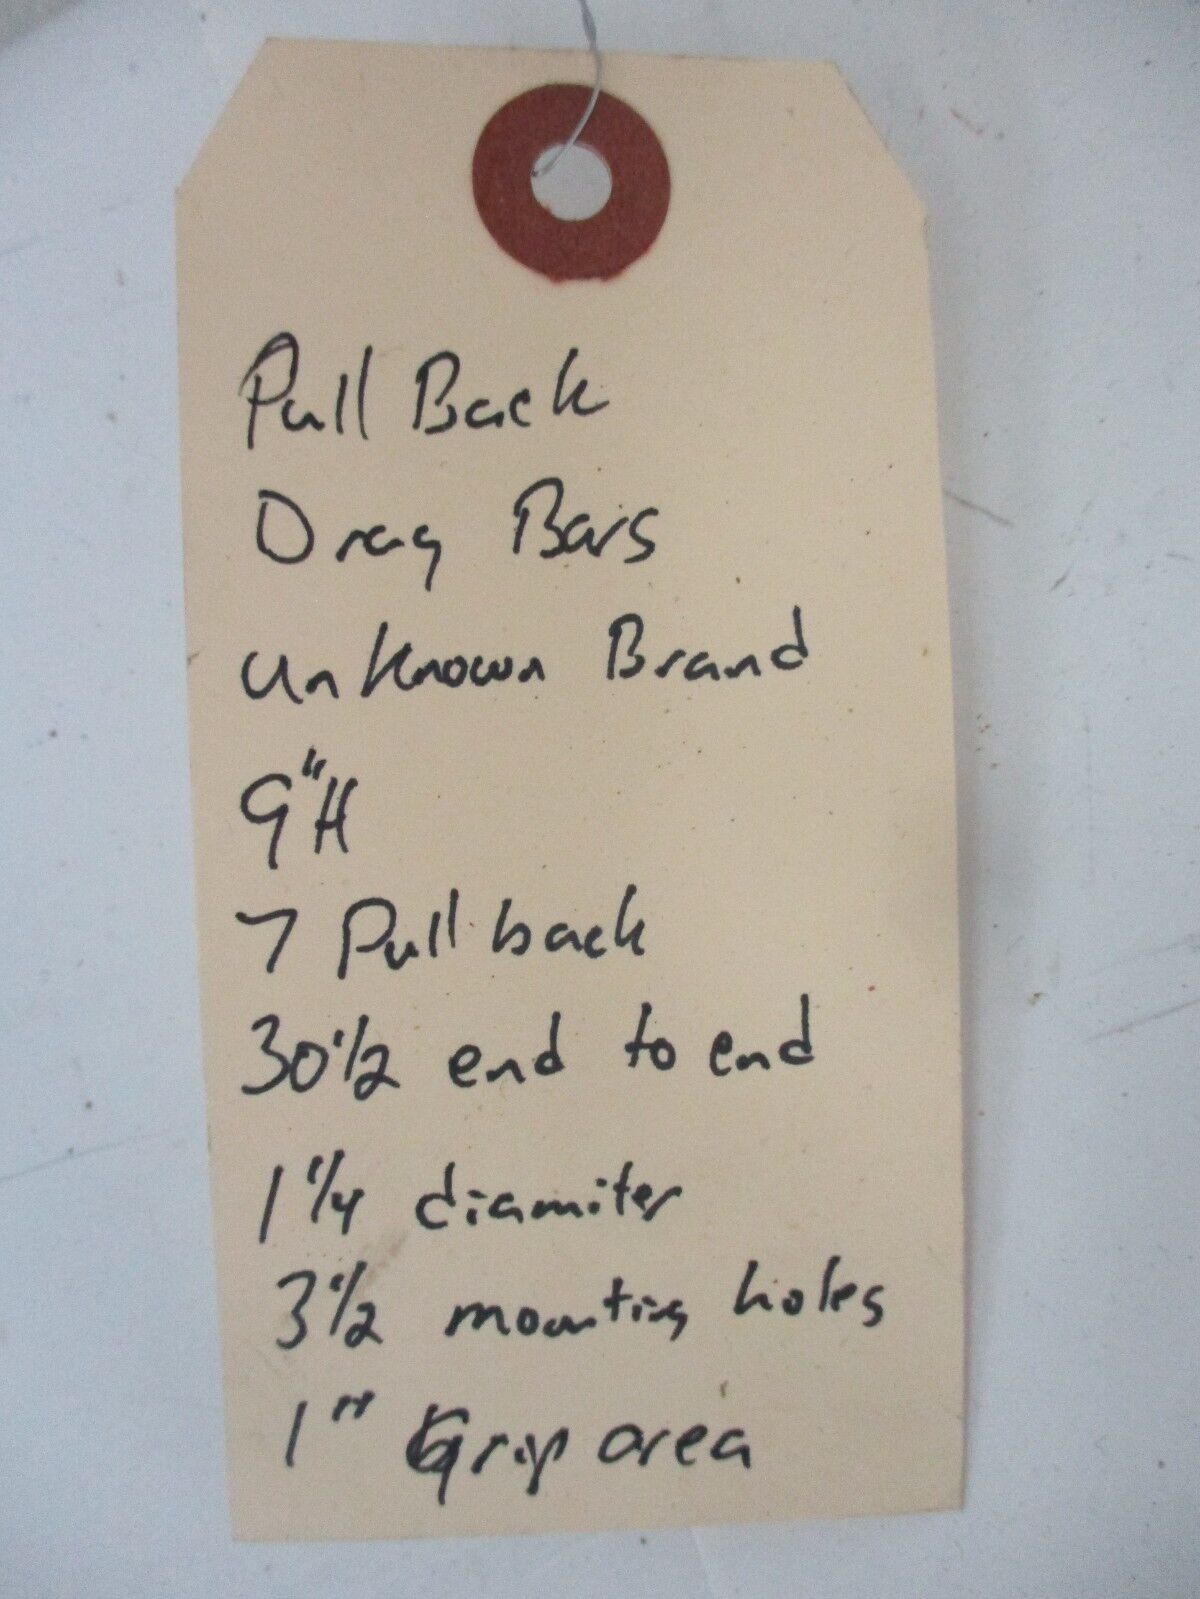 Pull Back
Drag Bars
unKnown Brand
9"H
7 Pull back
30 1/2 end to end
1 1/4 diamiter
3 1/2 mounting holes
1" Grip area